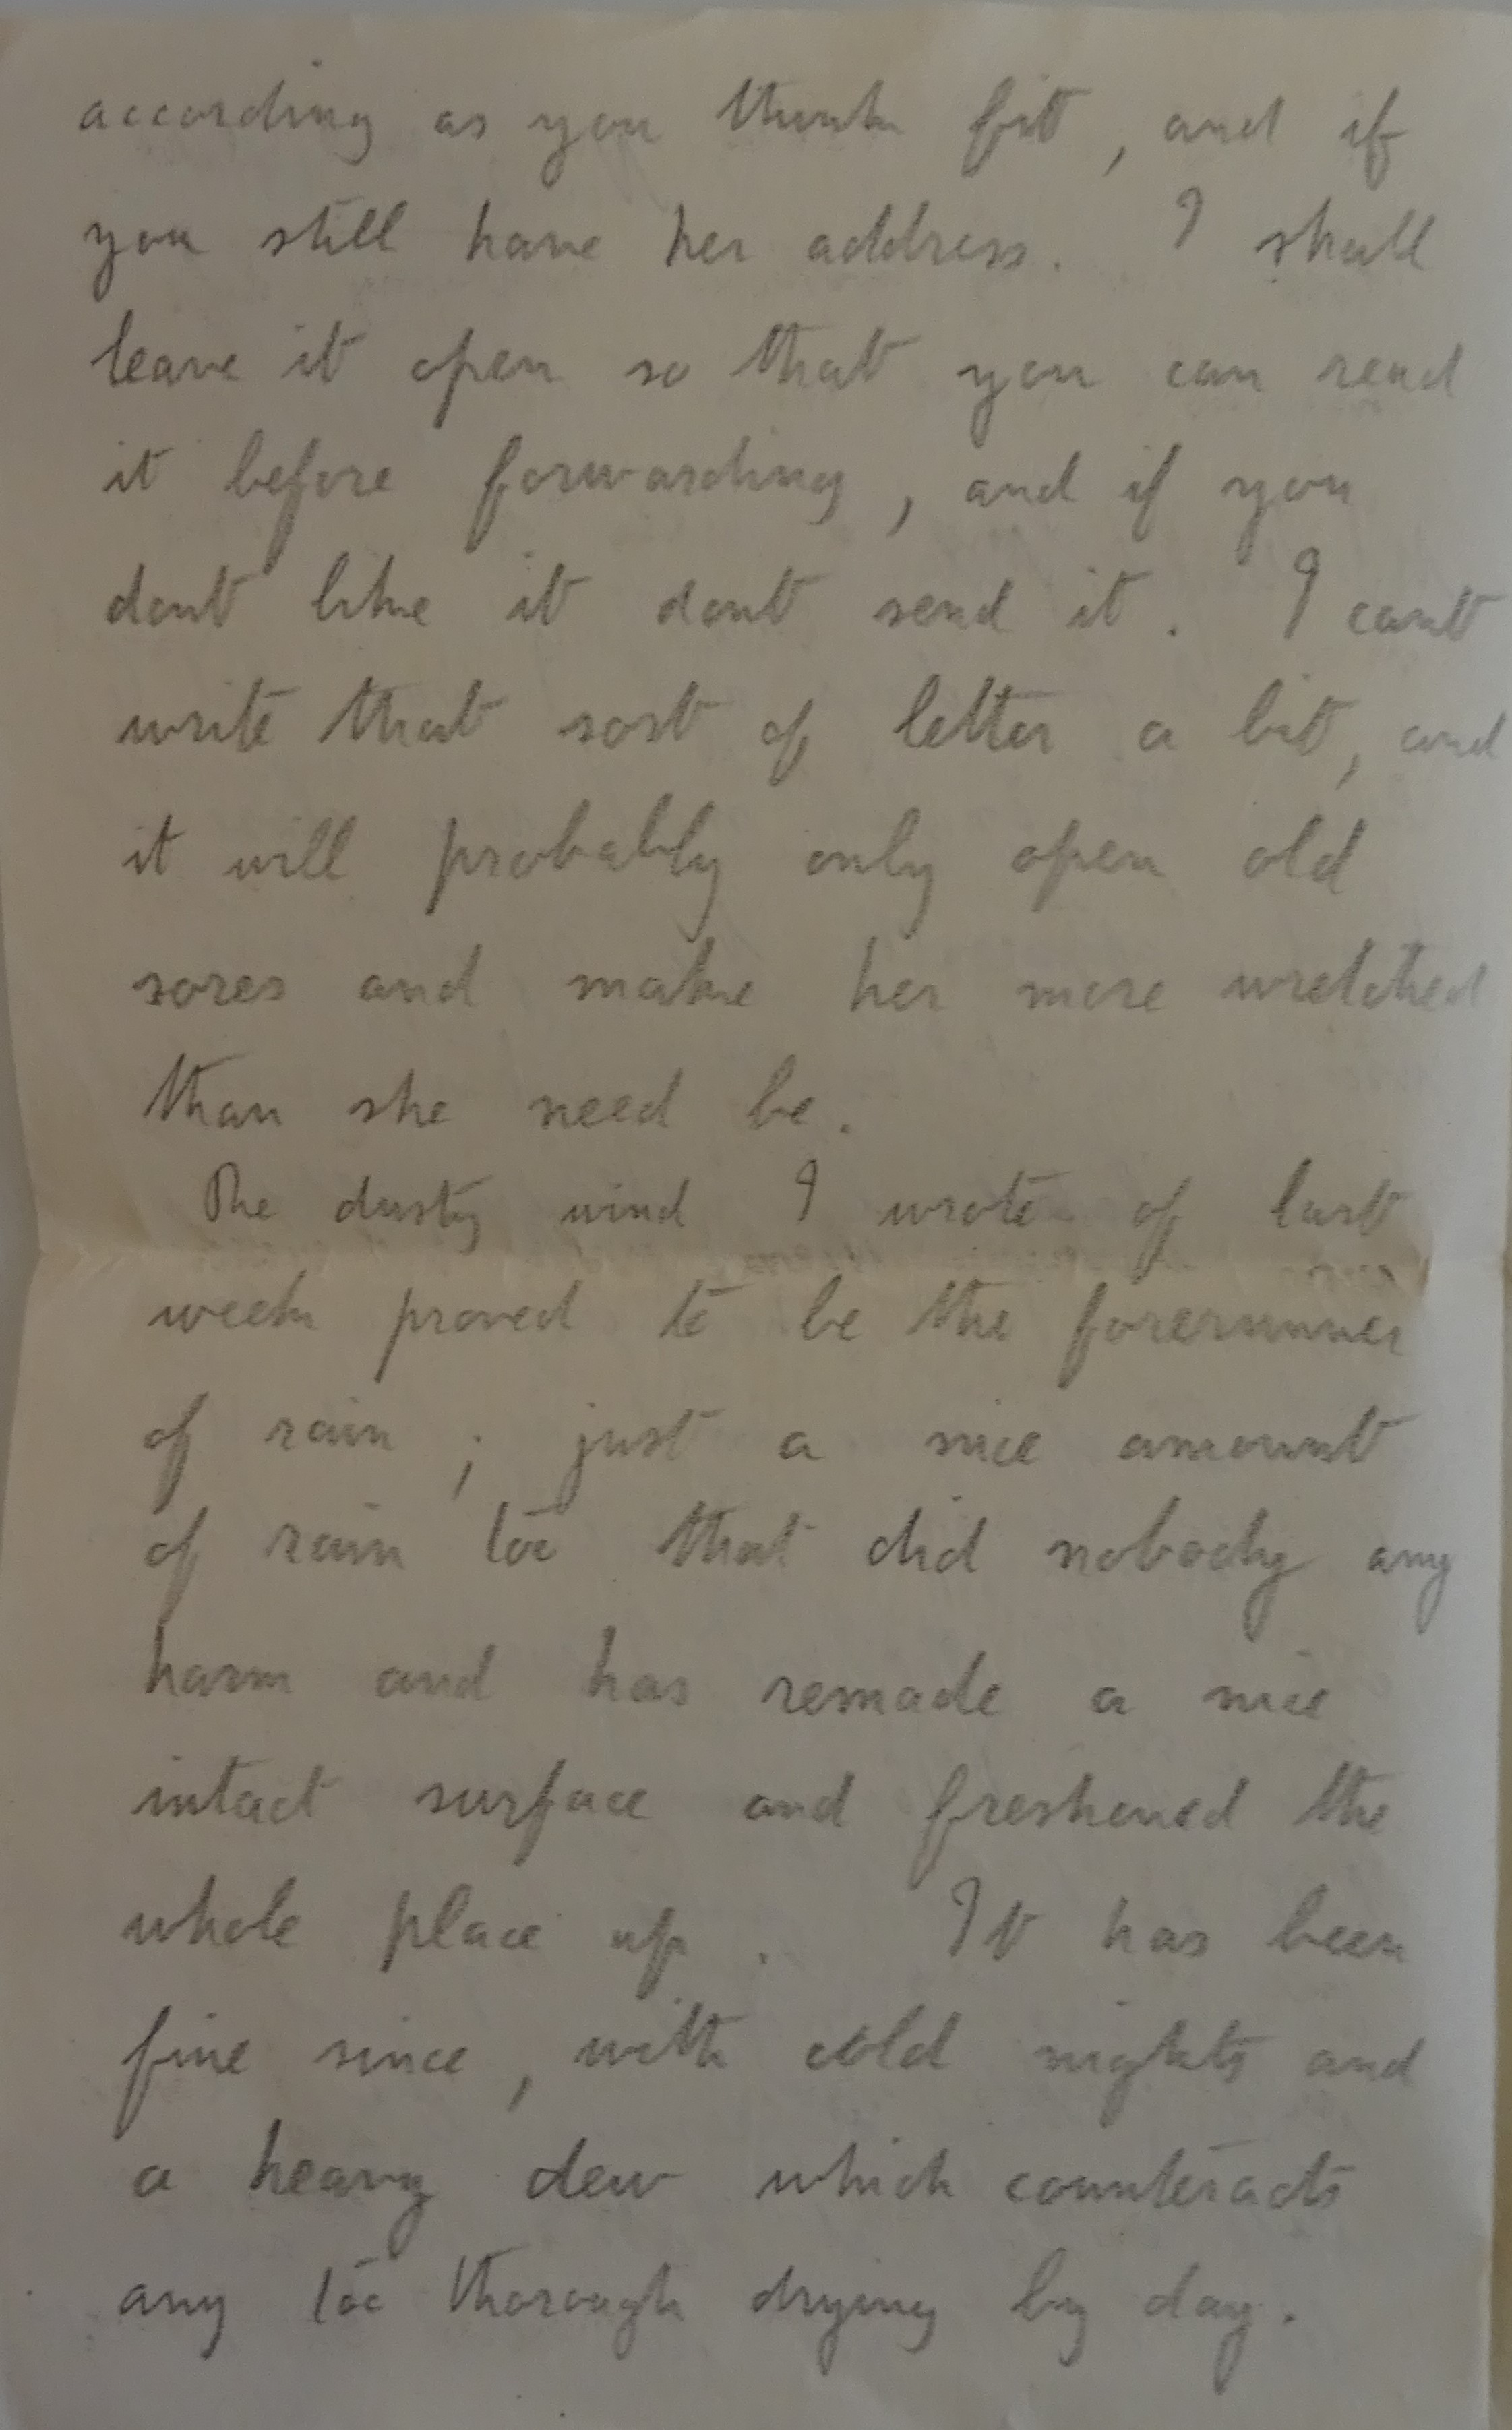 according as you think fit, and if
you still have her address. I shall
leave it open so that you can read
it before forwarding, and if you
dont like it dont send it. I cant
write that sort of letter a bit, and
it will probably only open old
sores and make her more wretched
than she need be.
The dusty wind I wrote of last
week proved to be the forerunner
of rain; just a nice amount
of rain too that did nobody any
harm and has remade a nice
intact surface and freshened the
whole place up. It has been
fine since, with cold nights and
a heavy dew which counteracts
any too thorough drying by day.